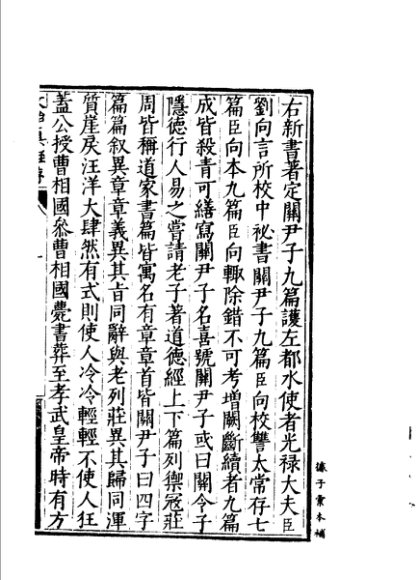 據子彙本補
右新書著定關尹子九篇護左都水使者光祿大夫臣
劉向言所校中祕書關尹子九篇臣向校讐太常存七
篇臣向本九篇臣向輙除錯不可考增闕斷續者九篇
成皆殺青可繕寫關尹子名喜號關尹子或曰關令子
隱德行人易之嘗請老子著道德經上下篇列禦冦莊
周皆稱道家書篇皆寓名有章章首皆關尹子曰四字
篇篇叙異章章義異其旨同辭與老列莊異其歸同渾
質崖戾汪洋大肆然有式則使人冷冷輕輕不使人狂
蓋公授曹相國叅曹相國薨書葬至孝武皇帝時有方